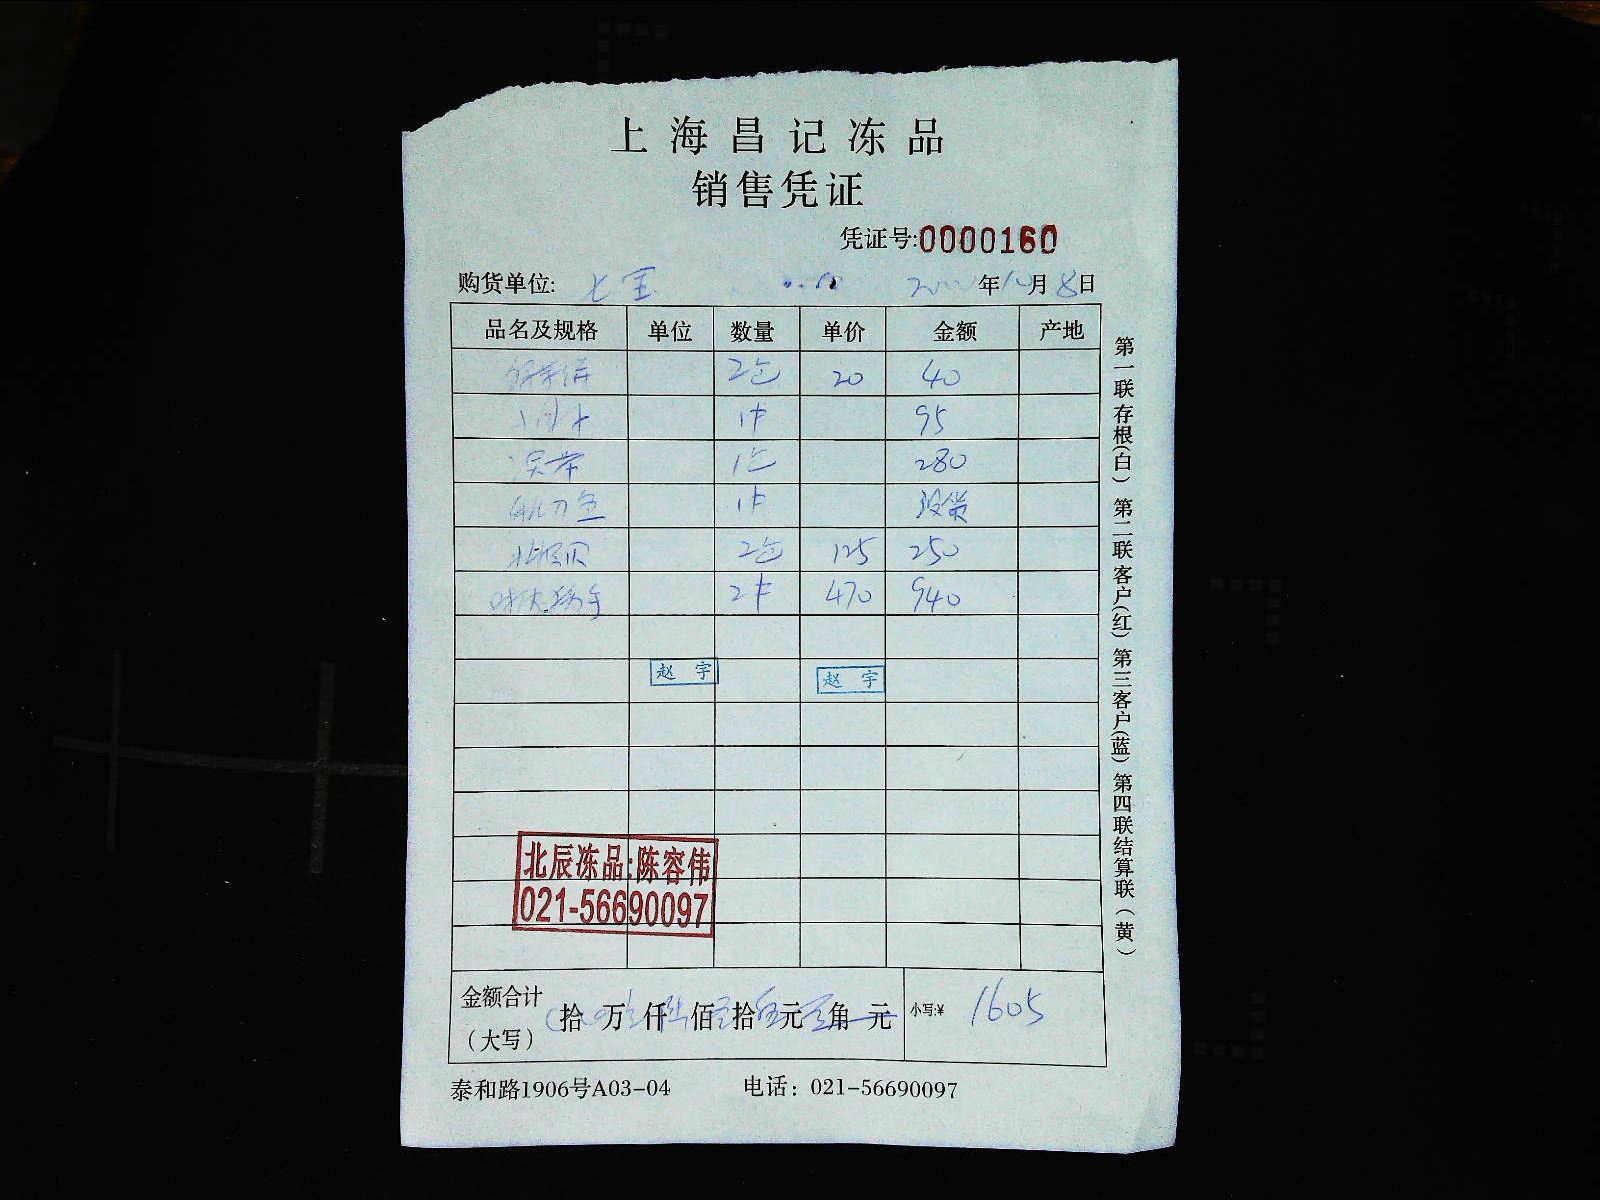 上海昌记冻品
销售凭证
凭证号:0000160
购货单位: 七宝 年10月8日
品名及规格 单位 数量 单价 金额 产地
2包 20 40
1件 95
1包 280
1件 没货
北极贝 2包 125 250
2件 470 940
赵宇 赵宇
北辰冻品:陈容伟
021-56690097
金额合计
(大写)
拾 万 仟 佰 拾 伍元 角 元 小写:¥ 1605
泰和路1906号A03-04 电话: 021-56690097
第一联存根(白) 第二联客户(红) 第三客户(蓝) 第四联结算联(黄)